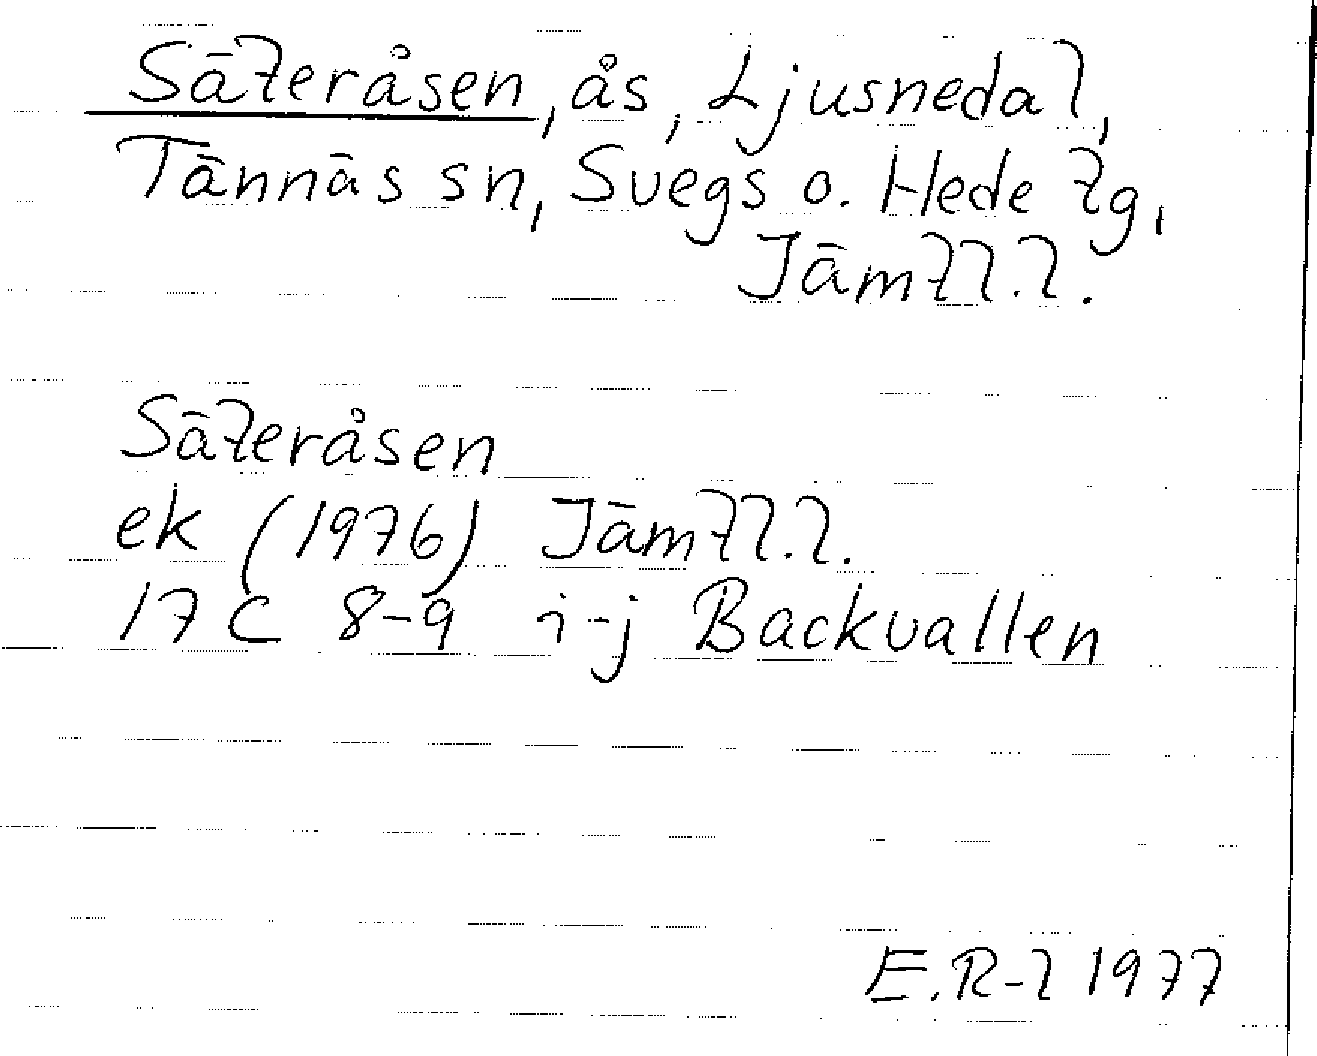 Säteråsen, ås, Ljusnedal,
Tännäs sn, Svegs o. Hede tg,
Jämtl.l.
Säteråsen
ek (1976) Jämtl.l.
17 C 8-9 i-j Backvallen
E.R-l 1977